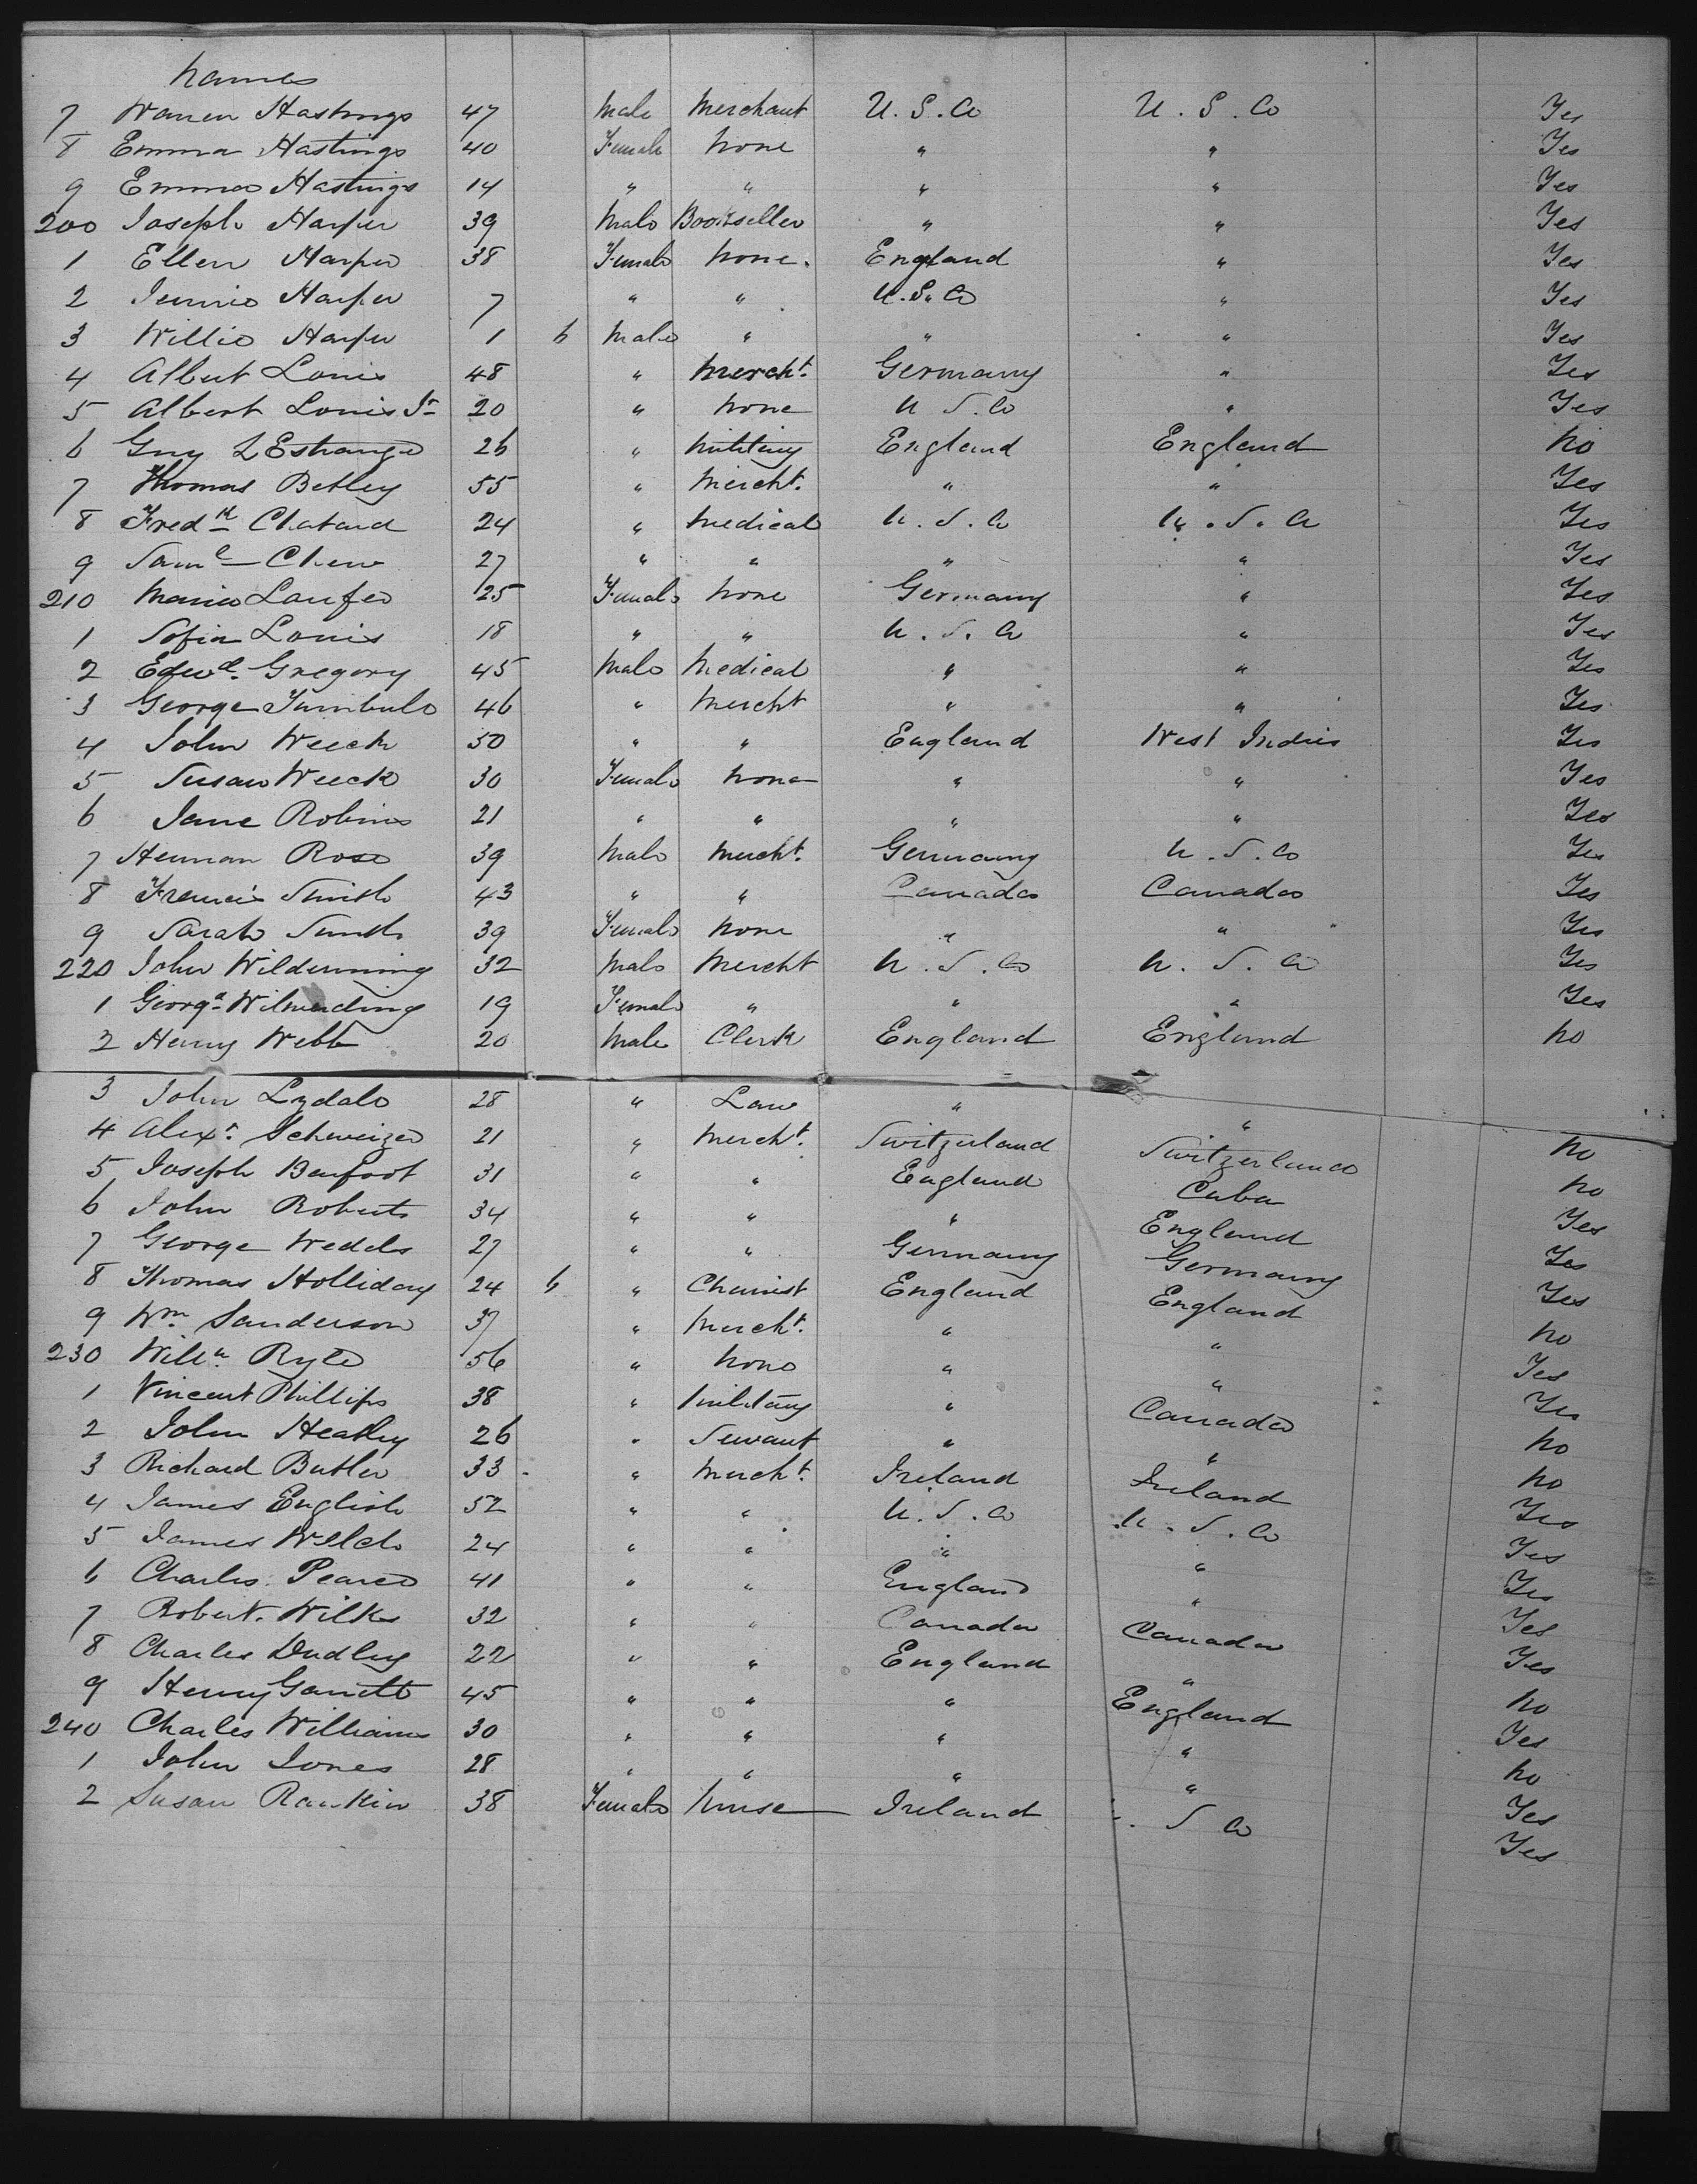 Names
7 Warren Hastings 47 Male Merchant U.S.A Yes U.S.A
8 Emma Hastings 40 Female None " " Yes
9 Emma Hastings 14 " " " " Yes
200 Joseph Harper 39 Male Bookseller " " Yes
1 Ellen Harper 38 Female None. England " Yes
2 Jennie Harper 7 " " U.S.A " Yes
3 Willie Harper 1 6 Male " " " Yes
4 Albert Louis 48 " Mercht. Germany " Yes
5 Albert Louis Jr 20 " None U.S.A " Yes
6 Guy L'Estrange 26 " Military England England No
7 Thomas Betley 55 " Mercht. " " Yes
8 Fredk Chatard 24 " Medical U.S.A U.S.A Yes
9 Saml Chew 27 " " " " Yes
210 Maria Laufer 25 Female None Germany " Yes
1 Sofia Louis 18 " " U.S.A " Yes
2 Edwd. Gregory 45 Male Medical " " Yes
3 George Turnbull 46 " Mercht " " Yes
4 John Weech 50 " " England West Indies Yes
5 Susan Weech 30 Female None " " Yes
6 Jane Robins 21 " " " " Yes
7 Herman Rose 39 Male Mercht. Germany U.S.A Yes
8 Francis Smith 43 " " Canada Canada Yes
9 Sarah Smith 39 Female None " " Yes
220 John 32 Male Mercht U.S.A U.S.A Yes
1 Georga. Wilmerding 19 Female " " " Yes
2 Henry Webb 20 Male Clerk England England No
3 John Lydale 28 " Law " " No
4 Alexr. Schweizer 21 " Mercht. Switzerland Switzerland No
5 Joseph Barfoot 31 " " England Cuba Yes
6 John Roberts 34 " " " England Yes
7 George Weddls 27 " " Germany Germany Yes
8 Thomas Holliday 24 6 " Chemist England England No
9 Wm. Sanderson 37 " Mercht. " " Yes
230 Willm. Ryle 56 " None " " Yes
1 Vincent Phillips 38 " Military " Canada No
2 John Heatley 26 " Servant " " No
3 Richard Butler 33 " Mercht. Ireland Ireland Yes
4 James English 52 " " U.S.A U.S.A Yes
5 James Welch 24 " " " " Yes
6 Charles Pearce 41 " " England " Yes
7 Robert. Wilkes 32 " " Canada Canada Yes
8 Charles Dudley 22 " " England " No
9 Henry 45 " " " England Yes
240 Charles Williams 30 " " " " No
1 John Jones 28 " " " " Yes
2 Susan Rankin 38 Female Nurse Ireland . S A Yes